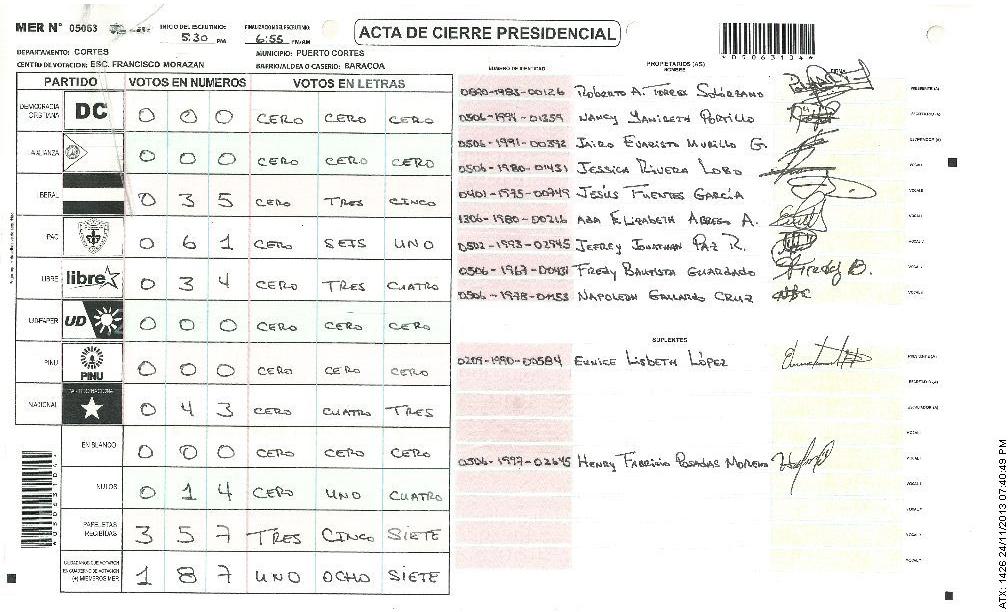 MER N° 05063
INICIO DEL ESCRUTINIO: 5:30 PM
FINALIZACION DEL ESCRUTINIO: 6:55 PM/AM
ACTA DE CIERRE PRESIDENCIAL
DEPARTAMENTO: CORTES
MUNICIPIO: PUERTO CORTES
CENTRO DE VOTACION: ESC. FRANCISCO MORAZAN
BARRIO/ALDEA O CASERIO: BARACOA
PARTIDO VOTOS EN NUMEROS VOTOS EN LETRAS
DEMOCRACIA CRISTIANA DC 0 0 0 CERO CERO CERO
ALIANZA 0 0 0 CERO CERO CERO
LIBERAL 0 3 5 CERO TRES CINCO
PAC 0 6 1 CERO SEIS UNO
LIBRE libre 0 3 4 CERO TRES CUATRO
UD/FAPER UD 0 0 0 CERO CERO CERO
PINU PINU 0 0 0 CERO CERO CERO
NACIONAL 0 4 3 CERO CUATRO TRES
EN BLANCO 0 0 0 CERO CERO CERO
NULOS 0 1 4 CERO UNO CUATRO
PAPELETAS RECIBIDAS 3 5 7 TRES CINCO SIETE
CIUDADANOS QUE VOTARON EN CUADERNO DE VOTACION (+) MIEMBROS MER 1 8 7 UNO OCHO SIETE
NUMERO DE IDENTIDAD
PROPIETARIOS (AS)
NOMBRE
FIRMA
0890-1983-00126 Roberto A. Torres Solórzano PRESIDENTE (A)
Nancy Yanireth Portillo SECRETARIO (A)
0506-1991-00392 Jairo Evaristo Murillo G. ESCRUTADOR (A)
0506-1980-01431 Jessica Rivera Lobo VOCAL I
0401-1975-00749 Jesús Fuentes García
1306-1980-00216 Ada Elizabeth Abrego A.
0502-1993-02945 Jefrey Jonathan Paz R.
Fredy Bautista Guardado Fredy B.
Napoleon Gallardo Cruz
SUPLENTES
0209-1990-00584 Eunice Lisbeth López PRESIDENTE (A)
SECRETARIO (A)
ESCRUTADOR (A)
0506-1997-02645 Henry Fabricio Posadas Moreno
*05063104*
ATX: 1426 24/11/2013 07:40:49 PM